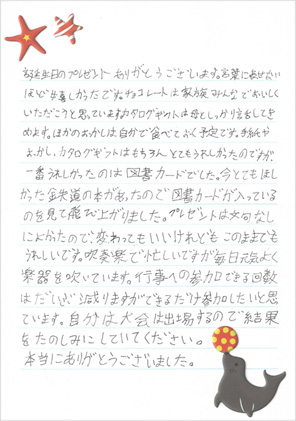 誕生日のプレゼントありがとうございます。言葉に表せない
ほど嬉しかったです。チョコレートは家族みんなでおいしく
いただこうと思っていますカタログギフトは母としっかり話をしてき
めます。ほかのおかしは自分で食べていく予定です。手紙や
おかし、カタログギフトはもちろんとてもうれしかったのですが、
一番うれしかったのは図書カードでした。今とてもほし
かった鉄道の本があったので図書カードが入っている
のを見て飛び上がりました。プレゼントは文句なし
によかったので、変わってもいいけれどもこのままでも
うれしいです。吹奏楽で忙しいですが毎日元気よく
楽器を吹いています。行事への参加できる回数
はだいぶ減りますができるだけ参加したいと思っ
ています。自分は大会は出場するので結果
をたのしみにしていてください。
本当にありがとうございました。